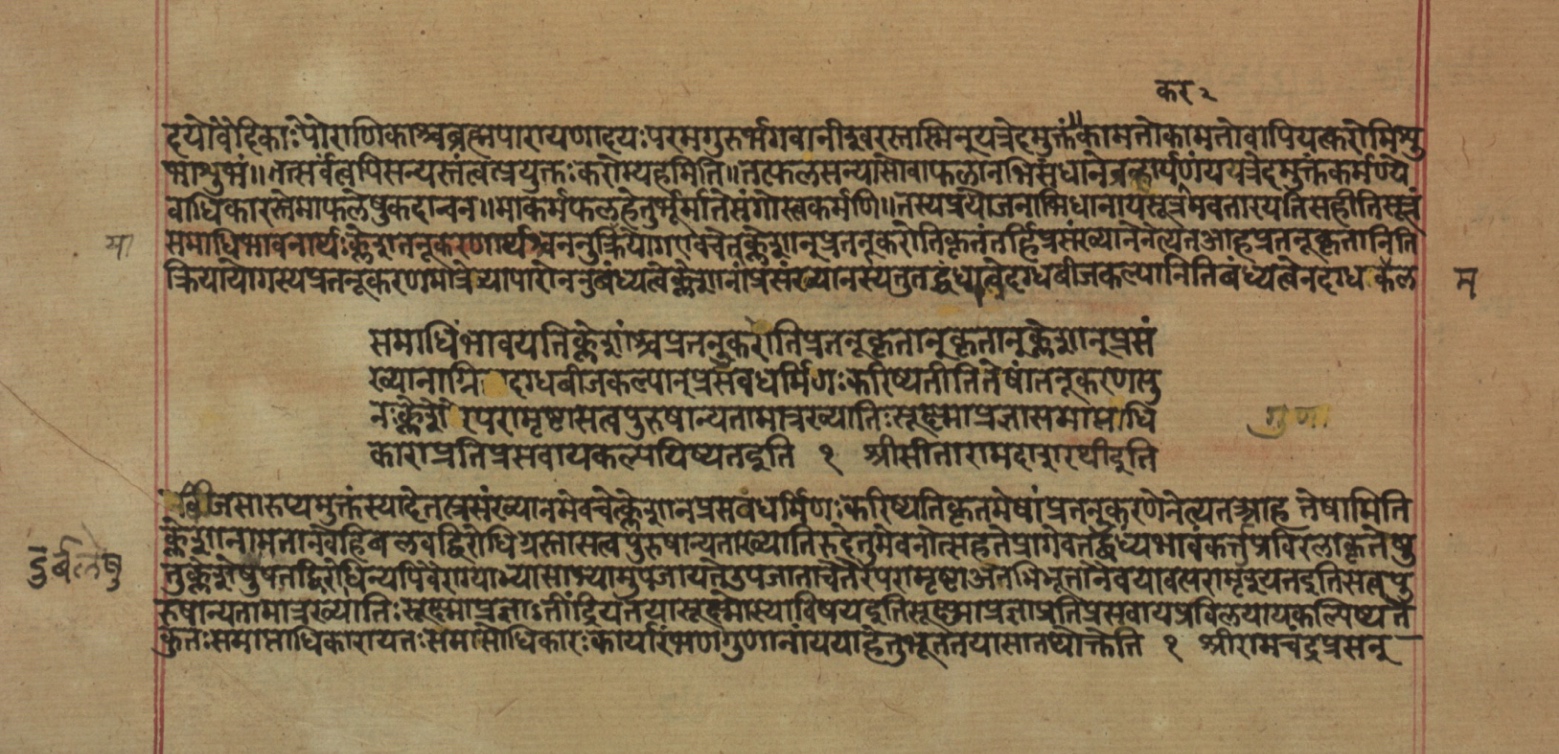 कर २
दयोवेदिकाःपौराणिकाश्चब्रह्मपारायणादयःपरमगुरुर्भगवानीश्वरस्तस्मिन्यत्रेदमुक्तंकामतोकामतोवापियत्करोमिशु
भाशुभं॥तत्सर्वंत्वयिसन्यस्तंत्वत्प्रयुक्तःकरोम्यहमिति॥तत्फलसन्यासोवाफलानभिसंधानेनकार्यणंययत्रेदमुक्तंकर्मण्ये
वाधिकारस्तेमाफलेषुकदाचन॥माकर्मफलहेतुर्भूर्मातेसंगोस्त्वकर्मणि॥तस्यप्रयोजनाभिधानायसूत्रमवतारयतिसहीतिसूत्रं
या
समाधिभावनार्थःक्लेशतनूकरणार्थश्चननुक्रियायोगएवचेत्क्लेशान्प्रतनूकरोतिकृतंतर्हिप्रसंख्यानेनेत्यतआहप्रतनूकृतानिति
क्रियायोगस्यप्रतनूकरणमात्रेव्यापारोनतुबंध्यत्वेक्लेशानांप्रसंख्यानस्यतुतद्बंध्यत्वेदग्धबीजकल्पानितिबंध्यत्वेनदग्धकल
म
समाधिंभावयतिक्लेशांश्चप्रतनुकरोतिप्रतनूकृतानुकृतान्क्लेशान्प्रसं
ख्यानाग्निनादग्धबीजकल्पानप्रसवधर्मिणःकरिष्यतीतितेषांतनूकरणात्पु
नःक्लेशैरपरामृष्टासत्वपुरुषान्यतामात्रख्यातिःसूक्ष्माप्रज्ञासमाप्ताधि
गुणा
काराप्रतिप्रसवायकल्पयिष्यतइति १ श्रीसीतारामदाशरथीइति
बीजसारुप्यमुक्तंस्यादेतत्प्रसंख्यानमेवचेत्क्लेशानप्रसवधर्मिणःकरिष्यतिकृतमेषांप्रतनुकरणेनेत्यतआह तेषामिति
क्लेशानामतानवेहिबलवद्विरोधिग्रस्तासत्वपुरुषान्यताख्यातिरुदेतुमेवनोत्सहतेप्रागेवतद्बंध्यभावंकर्त्तुंप्रविरलीकृतेषु
दुर्बलेषु
तुक्लेशेषुपतद्विरोधिन्यपिवैराग्याभ्यासाभ्यामुपजायतेउपजाताचतैरपरामृष्टाअनभिभूतानेवयावत्परामृश्यतइतिसत्वपु
रुषान्यतामात्रख्यातिःसूक्ष्माप्रज्ञाऽतींद्रियतयासूक्ष्मोस्याविषयइतिसूक्ष्माप्रज्ञाप्रतिप्रसवायप्रविलयायकल्पिष्यते
कुतःसमाप्ताधिकारायतःसमाप्तोधिकारःकार्यारंभणगुणानांययाहेतुभूततयासातथोक्तेति १ श्रीरामचंद्रप्रसन्